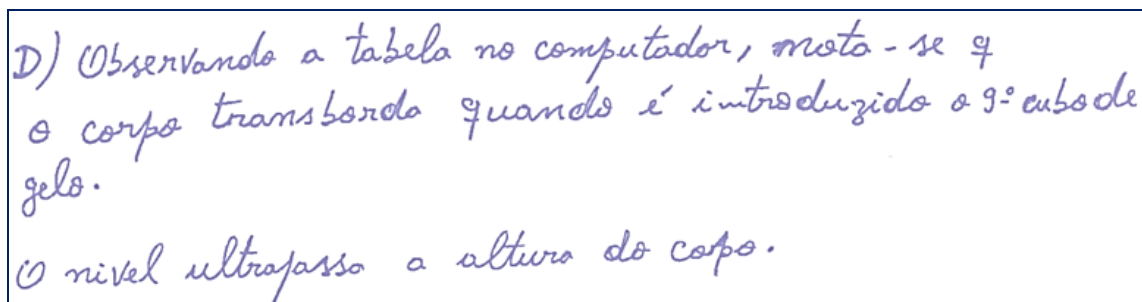 D) Observando a tabela no computador, nota-se q
o corpo transborda quando é introduzido o 9º cubo de
gelo.
O nivel ultrapassa a altura do copo.